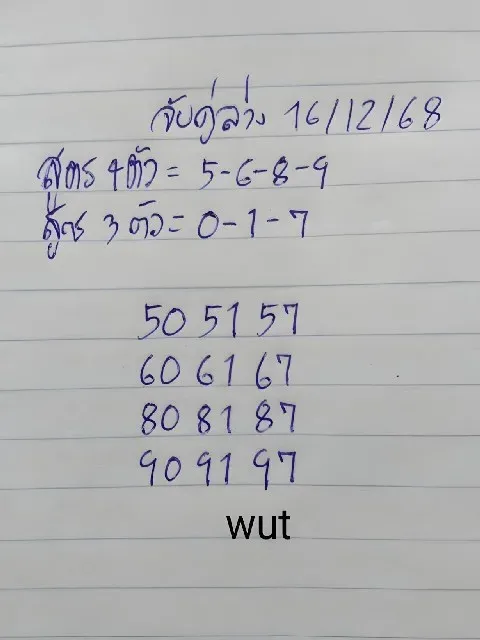 จับคู่ล่าง 16/12/68
สูตร 4ตัว = 5-6-8-9
สูตร 3 ตัว = 0-1-7
50 51 57
60 61 67
80 81 87
90 91 97
wut